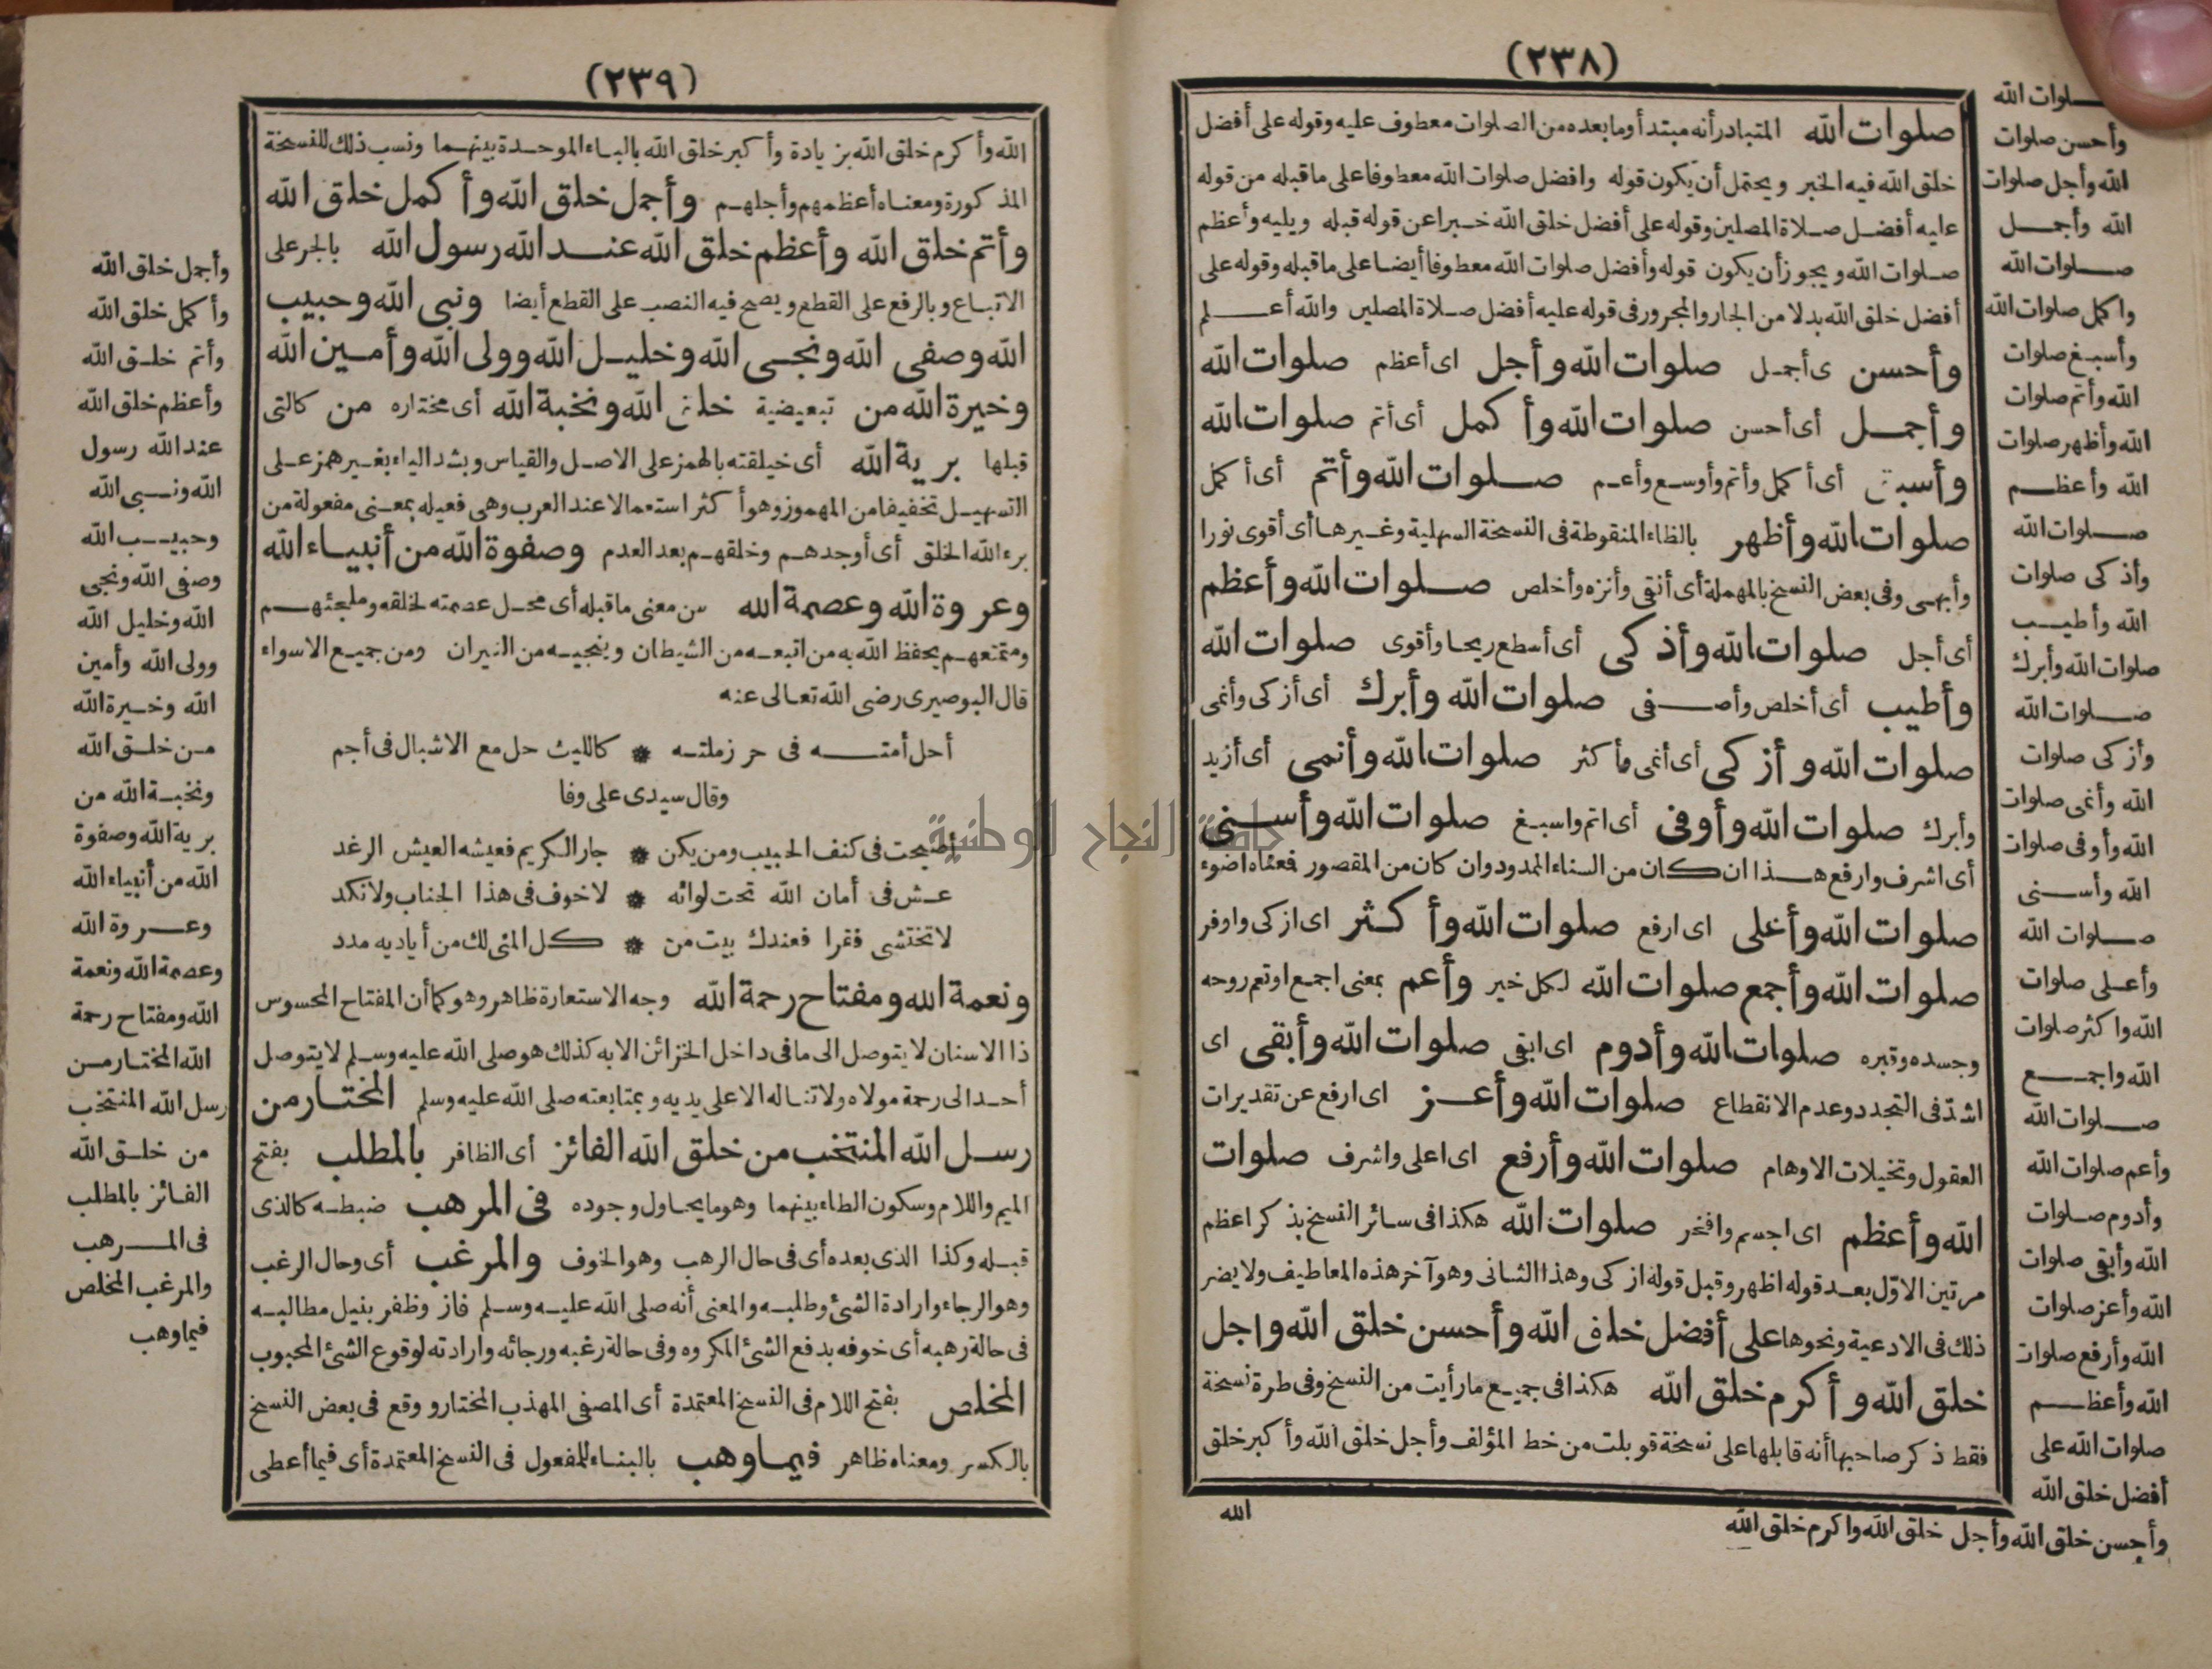 (٢٣٨)
صلوات الله المتبادر أنه مبتدأ وما بعده من الصلوات معطوف عليه وقوله على أفضل
خلق الله فيه الخبر ويحتمل أن يكون قوله وافضل صلوات الله معطوفا على ما قبله من قوله
عليه أفضل صلاة المصلين وقوله على أفضل خلق الله خبرا عن قوله قبله ويليه وأعظم
صلوات الله ويجوز أن يكون قوله وأفضل صلوات الله معطوفا أيضا على ما قبله وقوله على
أفضل خلق الله بدلا من الجار والمجرور فى قوله عليه أفضل صلاة المصلين والله أعلم
وأحسن ى أجمل صلوات الله وأجل اى أعظم صلوات الله
وأجمل أى أحسن صلوات الله وأكمل أى أتم صلوات الله
وأسبغ أى أكمل وأتم وأوسع وأعم صلوات الله وأتم أى أكمل
صلوات الله وأظهر بالظاء المنقوطة فى النسخة السهلية وغيرها أى أقوى نورا
وأبهى وفى بعض النسخ بالمهملة أى أنقى وأنزه وأخلص صلوات الله وأعظم
أى أجل صلوات الله وأذكى أى أسطع ريحا وأقوى صلوات الله
وأطيب أى أخلص وأصفى صلوات الله وأبرك أى أزكى وأنمى
صلوات الله وأزكى أى أنمى وأكثر صلوات الله وأنمى أى أزيد
وأبرك صلوات الله وأوفى أى اتم واسبغ صلوات الله وأسنى
أى اشرف وارفع هذا ان كان من السناء الممدود وان كان من المقصور فمعناه اضوء
صلوات الله وأعلى اى ارفع صلوات الله وأكثر اى ازكى واوفر
صلوات الله وأجمع صلوات الله لكل خير وأعم بمعنى اجمع او تعم روحه
وجسده وقبره صلوات الله وأدوم اى ابقى صلوات الله وأبقى اى
اشد فى التجدد وعدم الانقطاع صلوات الله وأعز اى ارفع عن تقديرات
العقول وتخيلات الاوهام صلوات الله وأرفع اى اعلى واشرف صلوات
الله وأعظم اى اجسم وافخر صلوات الله هكذا فى سائر النسخ بذكر اعظم
مرتين الاول بعد قوله اظهر وقبل قوله ازكى وهذا الثانى وهو آخر هذه المعاطيف ولا يضر
ذلك فى الادعية ونحوها على أفضل خلق الله وأحسن خلق الله واجل
خلق الله وأكرم خلق الله هكذا فى جميع ما رأيت من النسخ وفى طرة نسخة
فقط ذكر صاحبها أنه قابلها على نسخة قوبلت من خط المؤلف وأجل خلق الله وأكبر خلق
الله
صلوات الله
وأحسن صلوات
الله وأجل صلوات
الله وأجمل
صلوات الله
واكمل صلوات الله
وأسبغ صلوات
الله وأتم صلوات
الله وأظهر صلوات
الله وأعظم
صلوات الله
وأذكى صلوات
الله وأطيب
صلوات الله وأبرك
صلوات الله
وأزكى صلوات
الله وأنمى صلوات
الله وأوفى صلوات
الله وأسنى
صلوات الله
وأعلى صلوات
الله واكثر صلوات
الله واجمع
صلوات الله
وأعم صلوات الله
وأدوم صلوات
الله وأبقى صلوات
الله وأعز صلوات
الله وأرفع صلوات
الله وأعظم
صلوات الله على
أفضل خلق الله
وأحسن خلق الله وأجل خلق الله واكرم خلق الله
(٢٣٩)
الله وأكرم خلق الله بزيادة وأكبر خلق الله بالباء الموحدة بينهما ونسب ذلك للنسخة
المذكورة ومعناه أعظمهم وأجلهم وأجمل خلق الله وأكمل خلق الله
وأتم خلق الله وأعظم خلق الله عند الله رسول الله بالجر على
الاتباع وبالرفع على القطع ويصح فيه النصب على القطع أيضا ونبى الله وحبيب
الله وصفى الله ونجى الله وخليل الله وولى الله وأمين الله
وخيرة الله من تبعيضية خلق الله ونخبة الله أى مختاره من كالتى
قبلها برية الله أى خيلقته بالهمز على الاصل والقياس وبشد الياء بغير همز على
التسهيل تخفيفا من المهموز وهو أكثر استعمالا عند العرب وهى فعيله بمعنى مفعولة من
برء الله الخلق أى أوجدهم وخلقهم بعد العدم وصفوة الله من أنبياء الله
وعروة الله وعصمة الله من معنى ما قبله أى محل عصمته لخلقه وملجئهم
وممتعهم يحفظ الله به من اتبعه من الشيطان وينجيه من النيران ومن جميع الاسواء
قال البوصيرى رضى الله تعالى عنه
أحل أمته فى حرز ملته * كالليث حل مع الاشبال فى أجم
وقال سيدى على وفا
أصبحت فى كنف الحبيب ومن يكن * جار الكريم فعيشه العيش الرغد
عش فى أمان الله تحت لوائه * لا خوف فى هذا الجناب ولا نكد
لا تختشى فقرا فعندك بيت من * كل المنى لك من أياديه مدد
ونعمة الله ومفتاح رحمة الله وجه الاستعارة ظاهر وهو كما أن المفتاح المحسوس
ذا الاسنان لا يتوصل الى ما فى داخل الخزائن الا به كذلك هو صلى الله عليه وسلم لا يتوصل
أحد الى رحمة مولاه ولا تناله الا على يديه وبمتابعته صلى الله عليه وسلم المختار من
رسل الله المنتخب من خلق الله الفائز أى الظافر بالمطلب بفتح
الميم واللام وسكون الطاء بينهما وهو ما يحاول وجوده فى المرهب ضبطه كالذى
قبله وكذا الذى بعده أى فى حال الرهب وهو الخوف والمرغب أى وحال الرغب
وهو الرجاء وارادة الشئ وطلبه والمعنى أنه صلى الله عليه وسلم فاز وظفر بنيل مطالبه
فى حالة رهبه أى خوفه بدفع الشئ المكروه وفى حالة رغبه ورجائه وارادته لوقوع الشئ المحبوب
المخلص بفتح اللام فى النسخ المعتمدة أى المصفى المهذب المختار ووقع فى بعض النسخ
بالكسر ومعناه ظاهر فيما وهب بالبناء للمفعول فى النسخ المعتمدة أى فيما أعطى
وأجمل خلق الله
وأكمل خلق الله
وأتم خلق الله
وأعظم خلق الله
عند الله رسول
الله ونبى الله
وحبيب الله
وصفى الله ونجى
الله وخليل الله
وولى الله وأمين
الله وخيرة الله
من خلق الله
ونخبة الله من
برية الله وصفوة
الله من أنبياء الله
وعروة الله
وعصمة الله ونعمة
الله ومفتاح رحمة
الله المختار من
رسل الله المنتخب
من خلق الله
الفائز بالمطلب
فى المرهب
والمرغب المخلص
فيما وهب
جامعة النجاح الوطنية